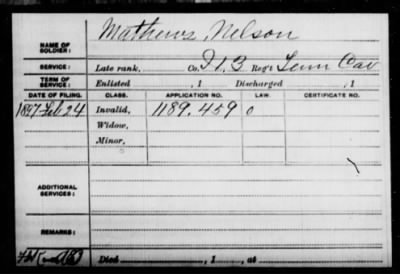 Mathews, Nelson
NAME OF SOLDIER:
SERVICE: Late rank, Co. I 13 Reg't Tenn Cav
TERM OF SERVICE: Enlisted , 1 Discharged , 1
DATE OF FILING. CLASS. APPLICATION NO. LAW. CERTIFICATE NO.
1897 Feb 24 Invalid, 1189.459 0
Widow,
Minor,
ADDITIONAL SERVICES:
REMARKS:
Died , 1 , at